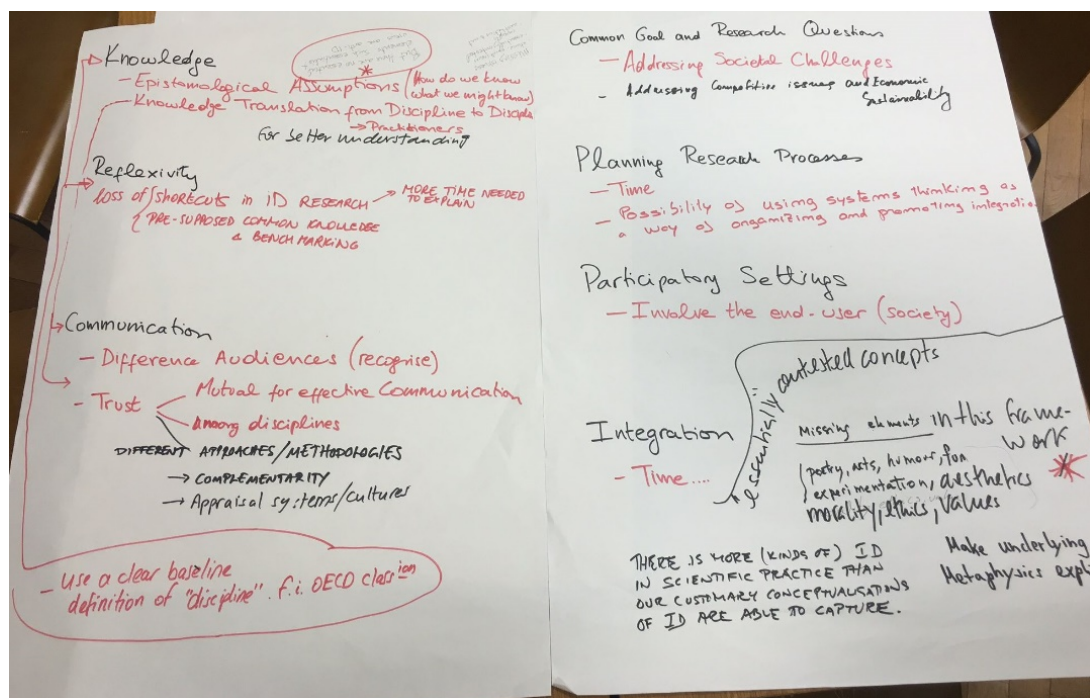 Knowledge
*
- Epistomological Assumptions (How do we know
what we might know)
- Knowledge Translation from Discipline to Disciple
→ Practitioners
For better understanding
Reflexivity
loss of shortcuts in ID RESEARCH → MORE TIME NEEDED
TO EXPLAIN
PRE-SUPPOSED COMMON KNOWLEDGE
& BENCH MARKING
Communication
- Difference Audiences (recognise)
- Trust
Mutual for effective Communication
Among disciplines
DIFFERENT APPROACHES/METHODOLOGIES
→ COMPLEMENTARITY
→ Appraisal systems/cultures
- Use a clear baseline
definition of "discipline". f.i. OECD class ion
Common Goal and Research Questions
- Addressing Societal Challenges
- Addressing Competitive issues and Economic
Sustainability
Planning Research Processes
- Time
- Possibility of using systems thinking as
a way of organizing and promoting integratio
Participatory Settings
- Involve the end-user (society)
Integration
- Time....
"essentially contested concepts
Missing elments in this frame-
work
poetry, arts, humor, fun
experimentation, aesthetics *
morality, ethics, values
THERE IS MORE (KINDS OF) ID
IN SCIENTIFIC PRACTICE THAN
OUR CUSTOMARY CONCEPTUALISATIONS
OF ID ARE ABLE TO CAPTURE.
Make underlying
Metaphysics expli